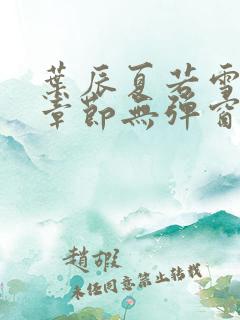 葉辰夏若雪
章節無彈窗
趙嘏
未經同意禁止轉載